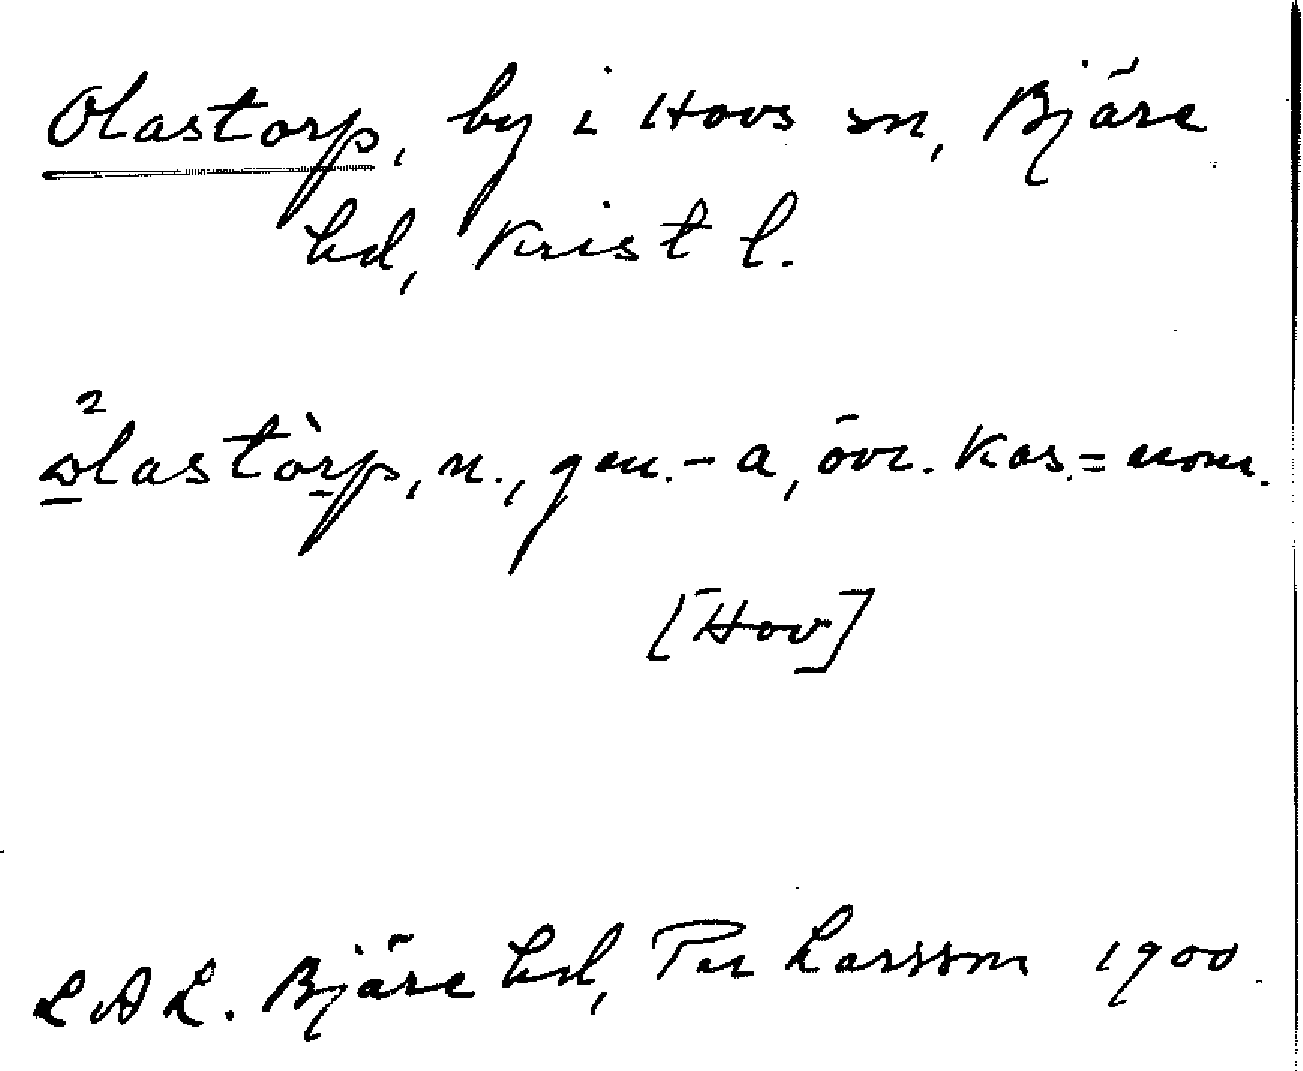 Olastorp, by i Hovs sn, Bjäre
hd, Krist l.
²olastòrp, n., gen. - a, övr. kas. = nom.
[Hov]
LAL. Bjäre hd, Per Larsson 1900